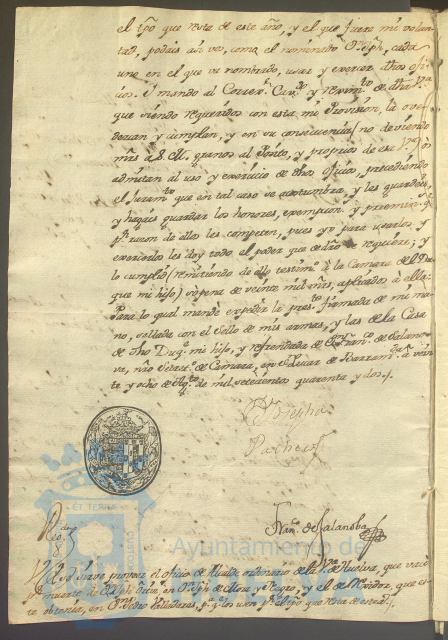 el tpō que resta de este año, y el que fuere mi volun-
tad, podais asi vos, como el nominado Dn. Jph, cada
uno en el que va nombrado, usar y exercer dhos ofi-
cios. I mando al Correxr. Cavdo. y reximto. de dha va.
que siendo requeridos con esta mi Provision, la ove-
dezcan y cumplan, y en su consecuencia (no deviendo
mrs. a S. M., granos al Posito, y propios de esa va.) os
admitan al uso y exercicio de dhos oficios, precediendo
el Juramto. que en tal caso se acostumbra, y les guarden,
y hagan guardar los honores, exempcion. y preeminens. q
pr. razon de ellos les competen, pues yo para usarlos y
exercerlos les doy todo el poder que de dro. se requiere; y
lo cumplid (remitiendo de ello testimo. a la Camara del Duqe.
que mi hijo) so pena de veinte mil mrs, aplicados a ella.
Para lo qual mandè expedir la prete. firmada de mi ma-
no, sellada con el Sello de mis armas, y las de la Casa
de dho Duqe. mi hijo, y refrendada de Dn. Franco. de Salano-
va, nro Secreto. de Camara, en Sn. Lucar de Barramda. a vein-
te y ocho de Agto. de mil setecientos quarenta y dos.
Josepha
Pacheco
ET TERRÆ
CUSTODIA
Frano. de Salanoba
Ayuntamiento de
V. E. se sirve proveer el oficio de Alcalde ordinario de la Va. de Huelva, que vacò
pr. muerte de Dn. Jph Ortiz en Dn. Jph de Mora y Negro, y el de Rexidor, que es-
te obtenia, en Dn. Pedro Valladares, pa. q los usen pr. el tpo que resta de este año.